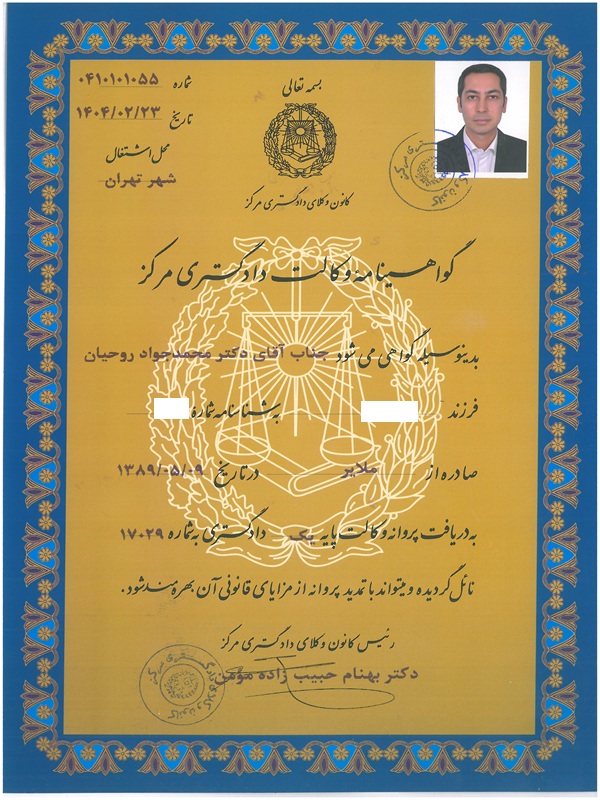 بسمه تعالی
شماره ۰۴۱۰۱۰۱۰۵۵
تاریخ ۱۴۰۴/۰۲/۲۳
محل اشتغال
شهر تهران
کانون وکلای دادگستری مرکز
گواهینامه وکالت دادگستری مرکز
بدینوسیله گواهی می شود جناب آقای دکتر محمدجواد روحیان
فرزند به شناسنامه شماره
صادره از ملایر در تاریخ ۱۳۸۹/۰۵/۰۹
به دریافت پروانه وکالت پایه یک دادگستری به شماره ۱۷۰۲۹
نائل گردیده و میتواند با تمدید پروانه از مزایای قانونی آن بهره مند شود.
رئیس کانون وکلای دادگستری مرکز
دکتر بهنام حبیب زاده مؤمن